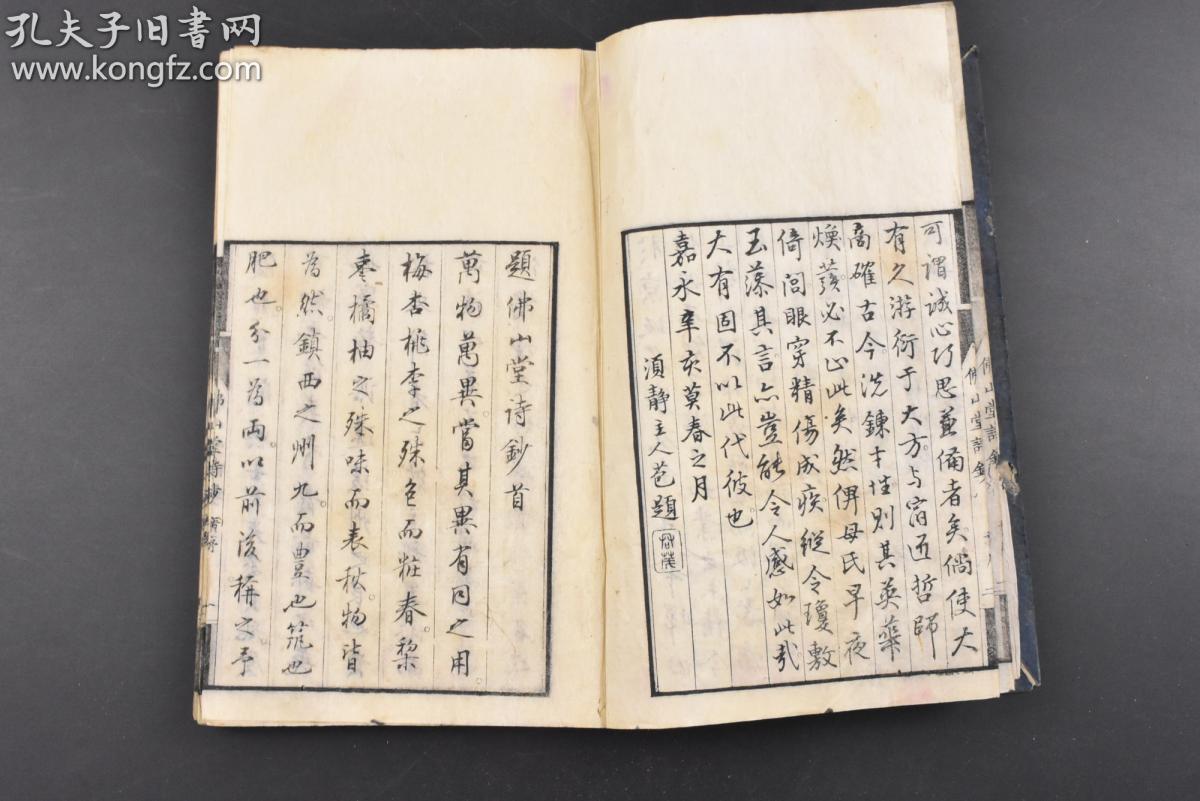 孔夫子旧书网
www.kongfz.com
可謂誠心巧思兼備者矣倘使大
有久游衍于大方与甯匠哲師
商確古今洗鍊才性則其英華
煥發必不止此矣然倂母氏早夜
倚閭眼穿精傷成疾縱令瓊敷
玉藻其言亦豈能令人感如此哉
大有固不以此代彼也
嘉永辛亥莫春之月
須静主人苞題
題佛山堂诗鈔首
萬物萬異當其異有同之用
梅杏桃李之殊色而粧春。梨
棗橘柚之殊味而表秋。物皆
為然鎮西之州九。而豊也筑也
肥也。分一為兩。以前後稱之予
佛山堂詩鈔
佛山堂詩鈔
佛山堂詩鈔